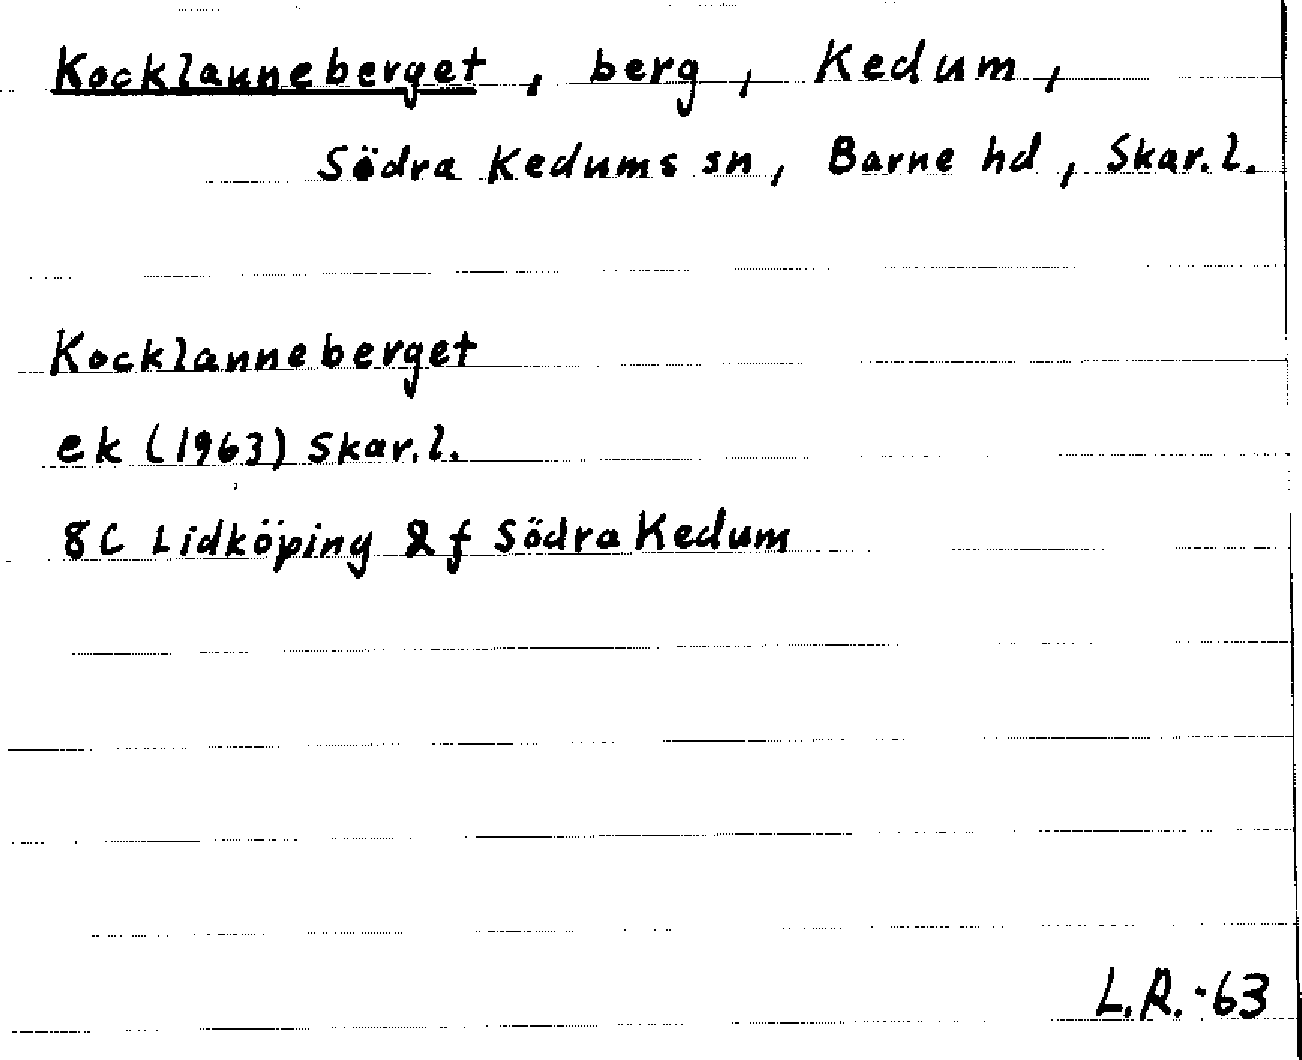 Kocklanneberget, berg, Kedum,
Södra Kedums sn, Barne hd, Skar.l.
Kocklanneberget
ek (1963) Skar.l.
8C Lidköping 2f Södra Kedum
L.R.-63